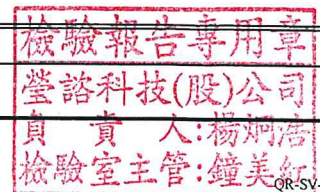 檢驗報告專用章
瑩諮科技(股)公司
負責人:楊炯浩
檢驗室主管:鐘美紅
QR-SV